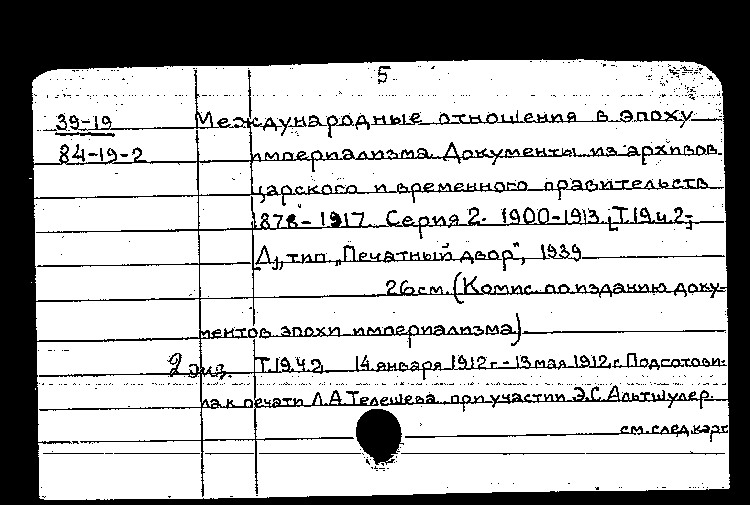 5
39-19 Международные отношения в эпоху
84-19-2 империализма. Документы из архивов
царского и временного правительств
1878-1917. Серия 2. 1900-1913. [Т.19.ч.2-]
[Л], тип. „Печатный двор", 1939
26см. (Комис. по изданию доку-
ментов эпохи империализма).
2 экз. Т.19.ч.2 14 января 1912 г. - 13 мая 1912 г. Подготови-
ла к печати Л.А. Телешева при участии Э.С. Альтшулер.
см. след карт